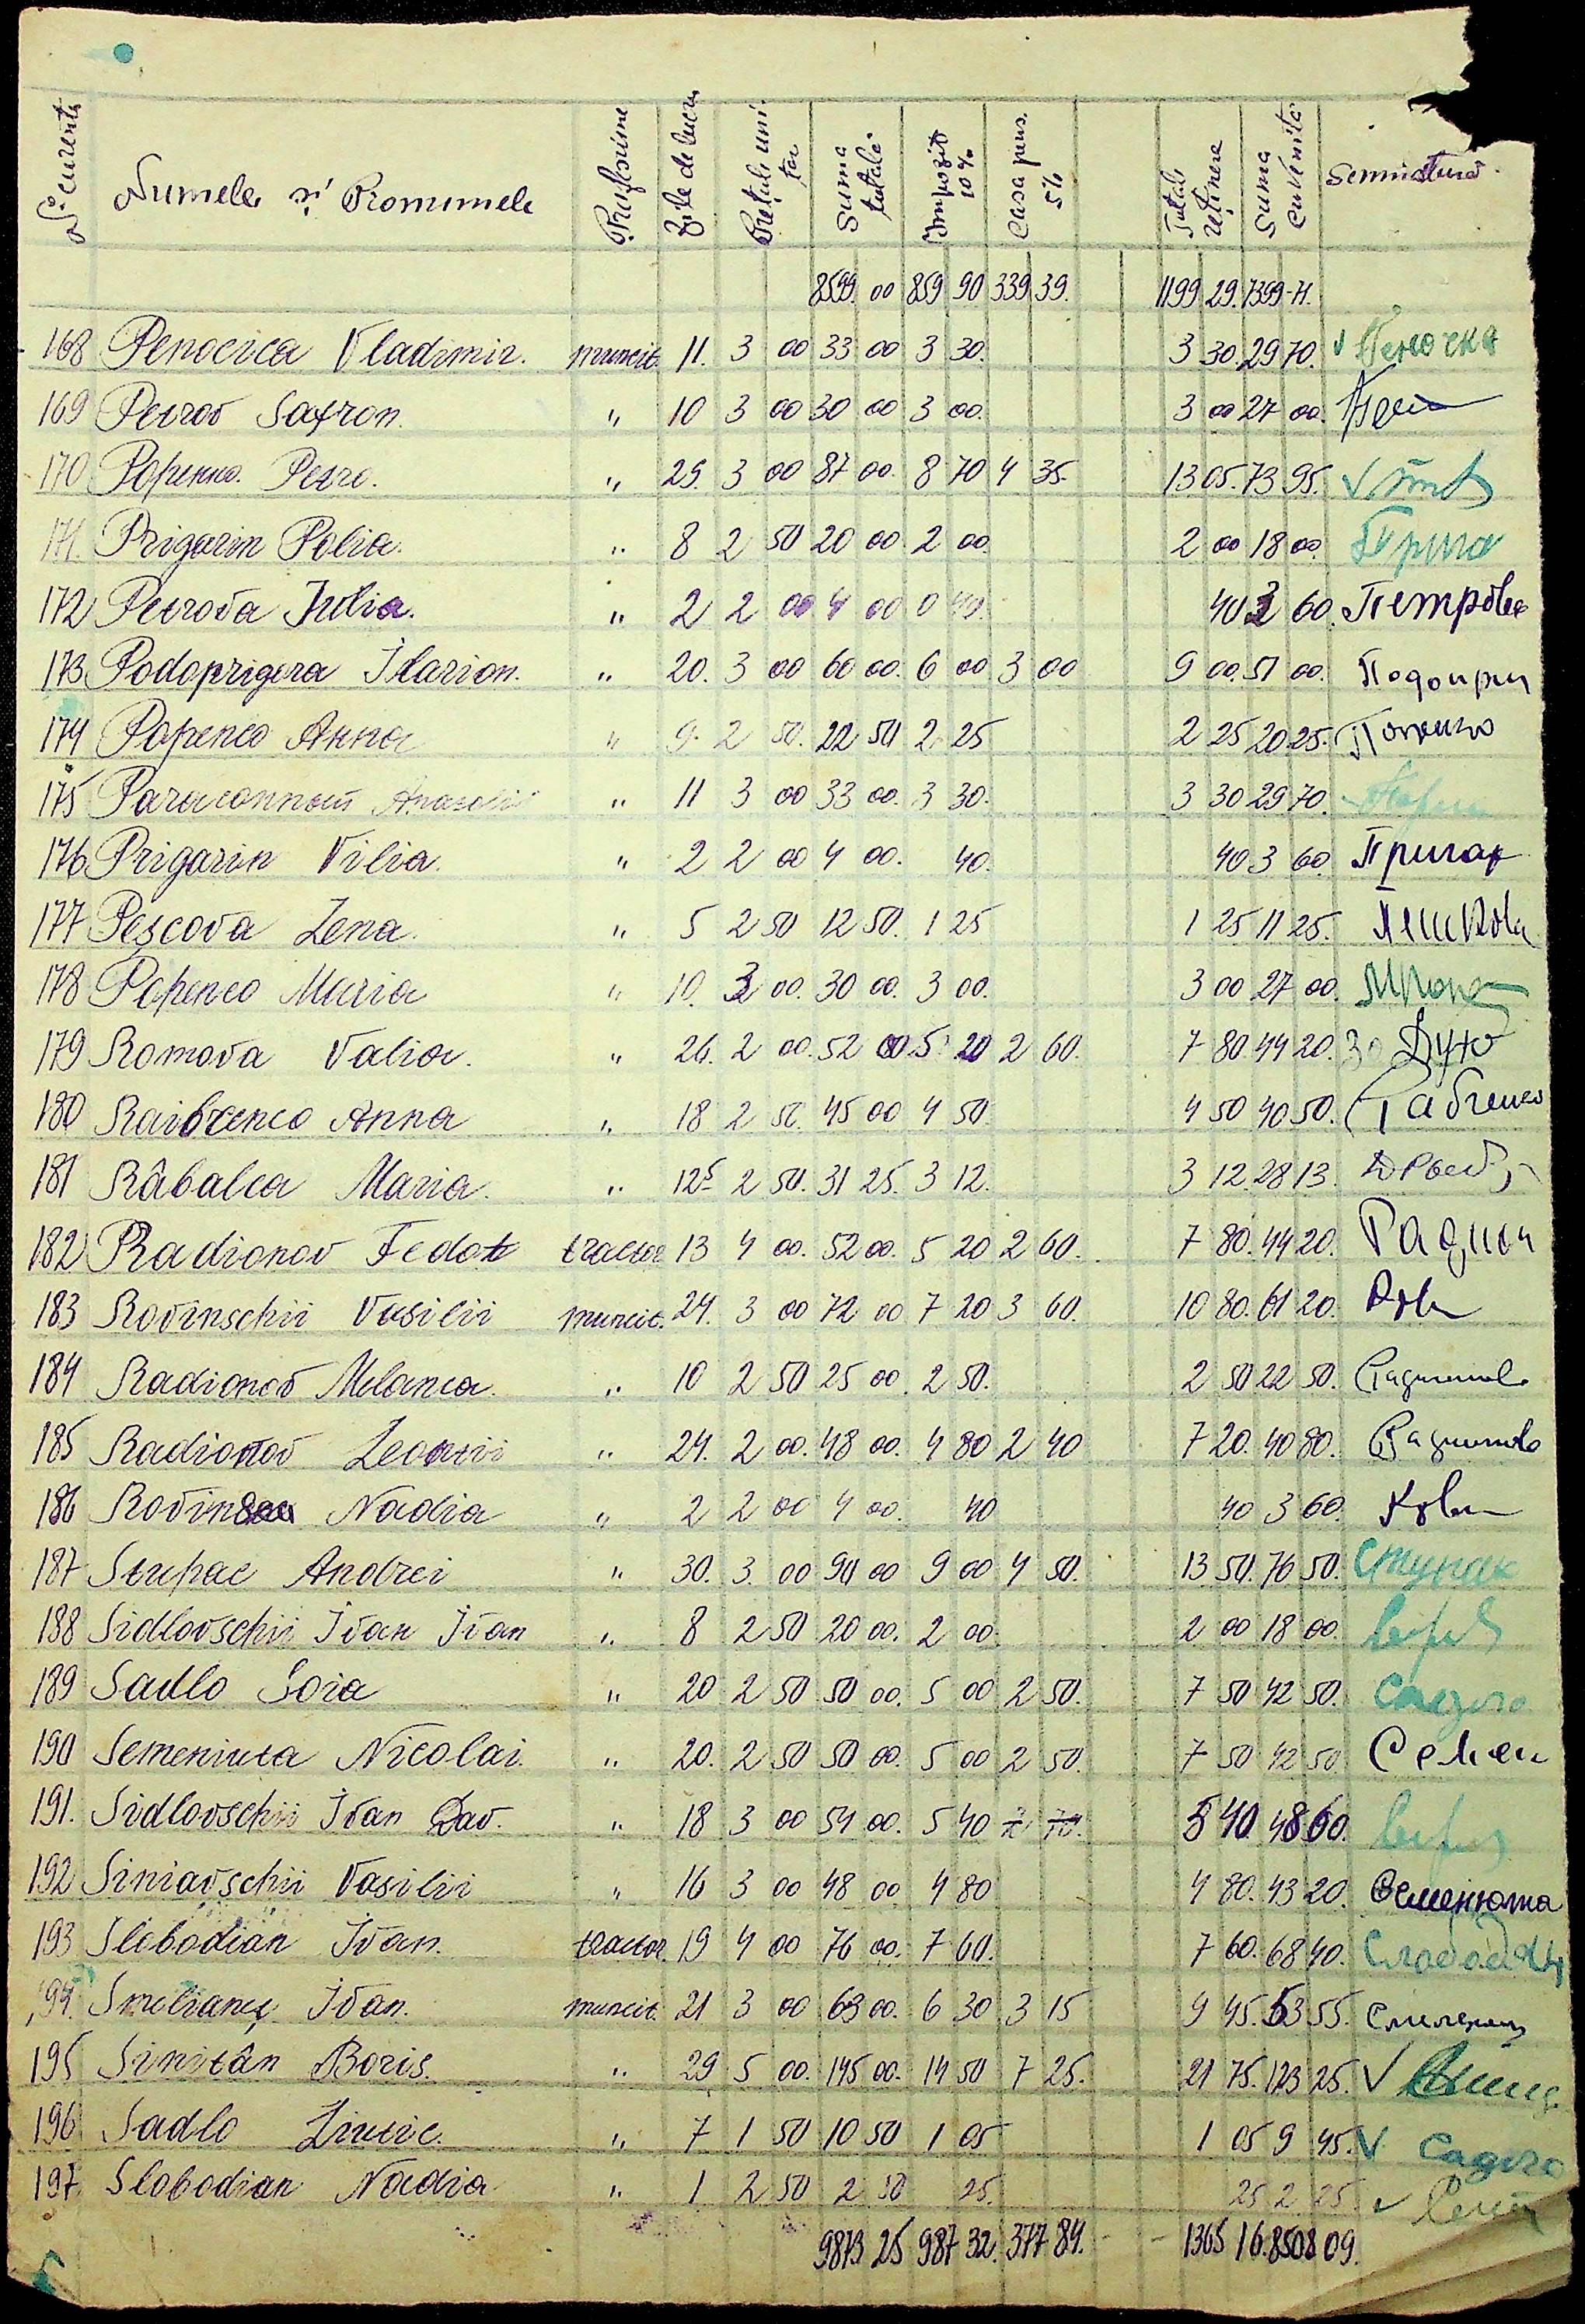 No curente Numele și Pronumele Profesiune Zile de lucru Prețul unitar Suma totală Impozit 10% Casa pens. 5% Total reținere Suma cuvenită Semnătura
8599 00 859 90 339 39. 1199 29. 7399-71.
168 Penocica Vladimir. muncit. 11. 3 00 33 00 3 30. 3 30. 29 70. v Пеночка
169 Petrov Safron. " 10 3 00 30 00 3 00. 3 00 27 00.
170 Popenko. Petro. " 29. 3 00 87 00. 8 70 4 35. 13 05. 73 95. v
171. Prigarin Polia. " 8 2 50 20 00. 2 00. 2 00 18 00. Прига
172 Petrova Iulia. " 2 2 00 4 00 0 40. 40 3 60. Петрова
173 Podoprigora Ilarion. " 20. 3 00 60 00. 6 00 3 00 9 00. 51 00. Подопри
174 Popenco Anna " 9. 2 50. 22 50 2 25 2 25 20 25. Попенко
175 Anatolii " 11 3 00 33 00. 3 30. 3 30 29 70.
176 Prigarin Vilia. " 2 2 00 4 00. 40. 40 3 60. Пригар
177 Peșcova Lena. " 5 2 50 12 50. 1 25 1 25 11 25. Пешкова
178 Popenco Maria " 10. 3 00. 30 00. 3 00. 3 00 27 00.
179 Romova Valia. " 26. 2 00. 52 00 5 20 2 60. 7 80. 44 20. За
180 Raibcenco Anna " 18 2 50. 45 00 4 50 4 50 40 50. Рабченко
181 Râbalca Maria. " 12 5 2 50. 31 25. 3 12. 3 12. 28 13.
182 Radionov Fedot tractor 13 4 00. 52 00. 5 20 2 60. 7 80. 44 20. Радион
183 Rovinschii Vasilii muncit. 24. 3 00 72 00 7 20 3 60. 10 80. 61 20. Ров
184 Radionov Melania. " 10 2 50 25 00. 2 50. 2 50 22 50. Радионов
185 Radionov Leontii " 24. 2 00. 48 00. 4 80 2 40 7 20. 40 80. Радионов
186 Nadia " 2 2 00 4 00. 40 40 3 60.
187 Stupac Andrei " 30. 3. 00 90 00 9 00 4 50. 13 50. 76 50. Ступак
188 Sidlovschii Ivan Ivan " 8 2 50 20 00. 2 00. 2 00 18 00.
189 Sadlo Soia " 20 2 50 50 00. 5 00 2 50. 7 50 42 50. Садло
190 Semeniuta Nicolai. " 20. 2 50 50 00. 5 00 2 50. 7 50 42 50 Семен
191. Sidlovschii Ivan Dav. " 18 3 00 54 00. 5 40 2 70. 5 40. 48 60.
192 Siniavschii Vasilii " 16 3 00 48 00 4 80 4 80. 43 20. Семенюта
193 Slobodian Ivan. tractor 19 4 00 76 00. 7 60. 7 60. 68 40. Слободян
194. Smelianeț Ivan. muncit. 21 3 00 63 00. 6 30 3 15 9 45. 53 55.
195 Sinitân Boris. " 29 5 00. 145 00. 14 50 7 25. 21 75. 123 25. v
196 Sadlo " 7 1 50 10 50 1 05 1 05 9 45. v Садло
197 Slobodian Nadia " 1 2 50 2 50 25. 25 2 25. v
9873 25 987 32. 377 84. - 1365 16. 8508 09.